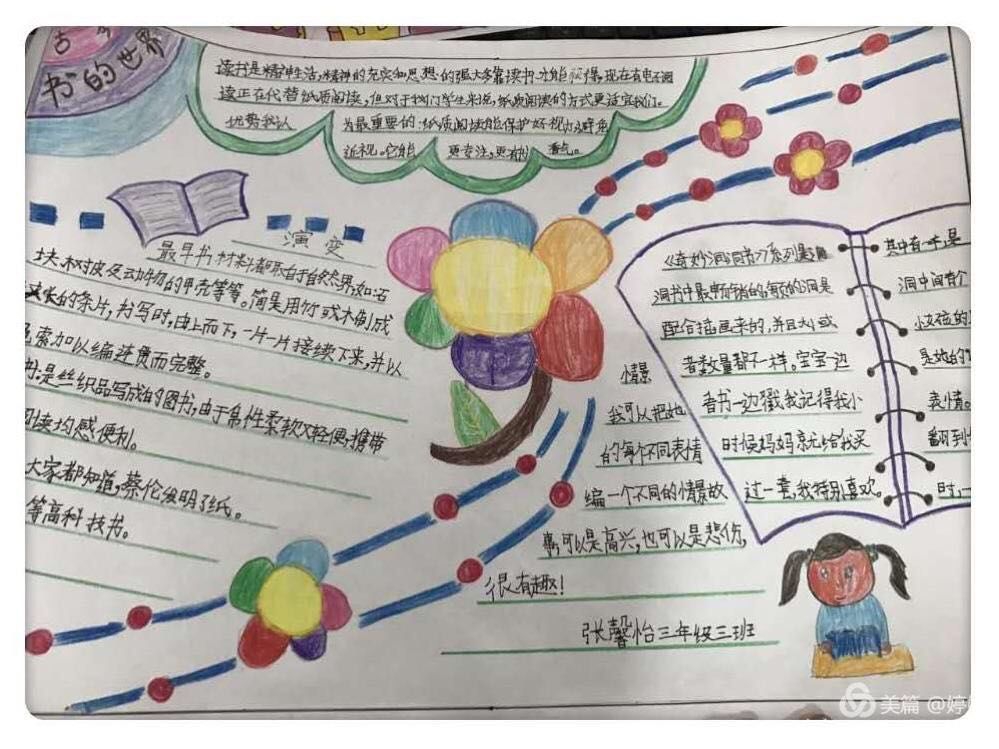 古
书的世界
读书是精神生活,精神的充实和思想的强大多靠读书才能获得,现在有电子阅
读正在代替纸质阅读,但对于我们学生来说,纸质阅读的方式更适宜我们。
优势我认
为最重要的:纸质阅读能保护好视力,避免
近视。它能
更专注,更有
看点。
演变
最早书材料都取自于自然界,如:石
块、树皮及动物的甲壳等等。简是用竹或木制成
的条片,书写时,由上而下,一片一片接续下来,并以
索加以编连贯而完整。
书:是丝织品写成的图书,由于帛性柔软又轻便,携带
阅读均感便利。
大家都知道,蔡伦发明了纸。
等高科技书。
《奇妙洞洞书》系列是
洞书中最畅销的,每页的洞是
配合插画来的,并且大小或
者数量都不一样。宝宝一边
看书一边戳,我记得我小
时候妈妈就给我买
过一套,我特别喜欢。
其中有一本,是
洞中间有个
女孩的
是她的
表情。
翻到
时,一
情景
我可以把她
的每个不同表情
编一个不同的情景故
事,可以是高兴,也可以是悲伤,
很有趣!
张馨怡三年级三班
美篇 @婷